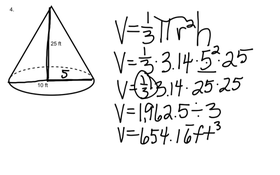 4.
25 ft
5
10 ft
V=⅓πr²h
V=⅓·3.14·5²·25
V=⅓·3.14·25·25
V=1,962.5÷3
V=654.16ft³